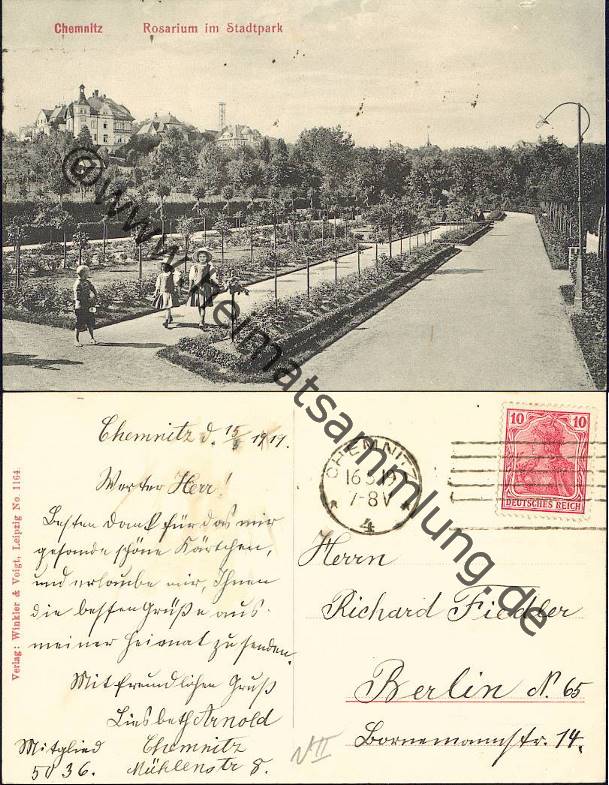 Chemnitz Rosarium im Stadtpark
© www.heimatsammlung.de
Chemnitz d. 15/5 1911.
Werter Herr!
Besten Dank für das mir
gesandte schöne Kärtchen,
und erlaube mir, Ihnen
die besten Grüße aus
meiner Heimat zu senden.
Mit freundlichen Gruß
Liesbeth Arnold
Mitglied Chemnitz
5036. Mühlenstr 8.
Verlag: Winkler & Voigt, Leipzig No. 1164.
CHEMNITZ
16.5.
7-8V
4
10 10
DEUTSCHES REICH
Herrn
Richard Fiedler
Berlin N. 65
Bornemannstr. 14.
N II